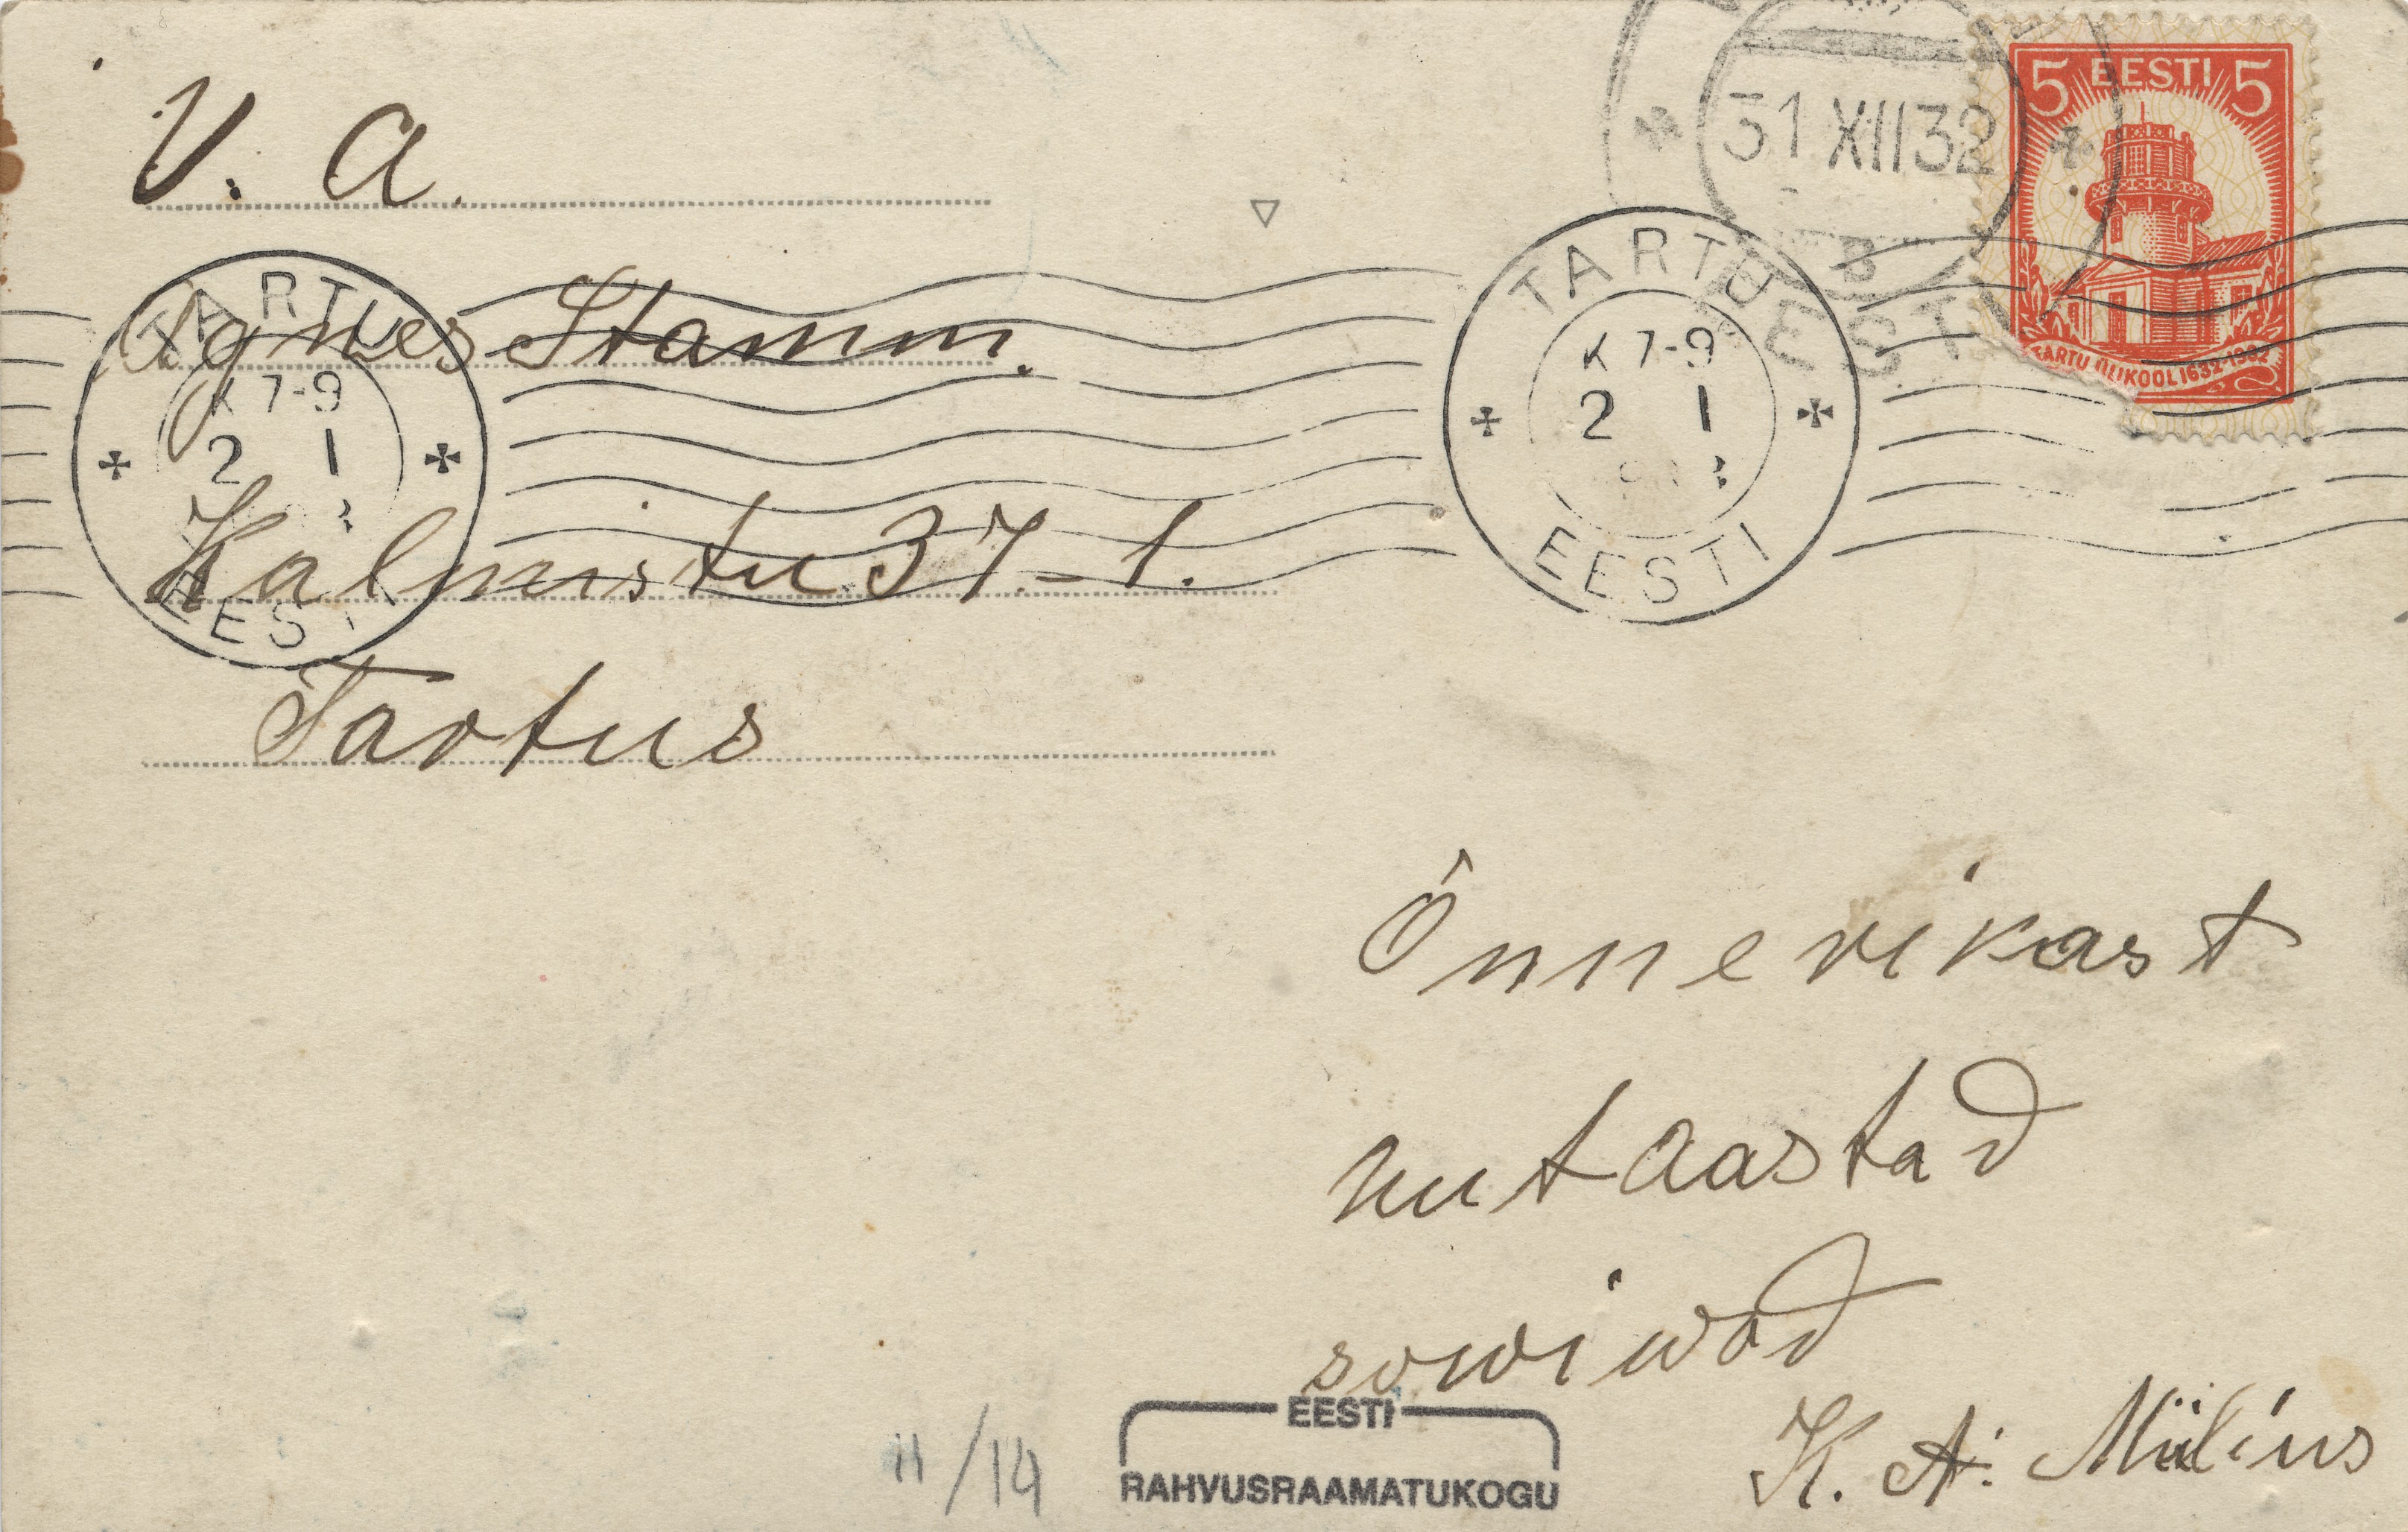 V. A.
Agnes Stamm.
Kalmistu 37-1.
Tartus
31 XII 32
B
EESTI
5 EESTI 5
TARTU ÜLIKOOL 1632-1932
TARTU
K 7-9
2 1
EESTI
TARTU
K 7-9
2 1
EESTI
Õnnerikast
uutaastad
sowiwad
K. A. Miilius
11/14
EESTI
RAHVUSRAAMATUKOGU